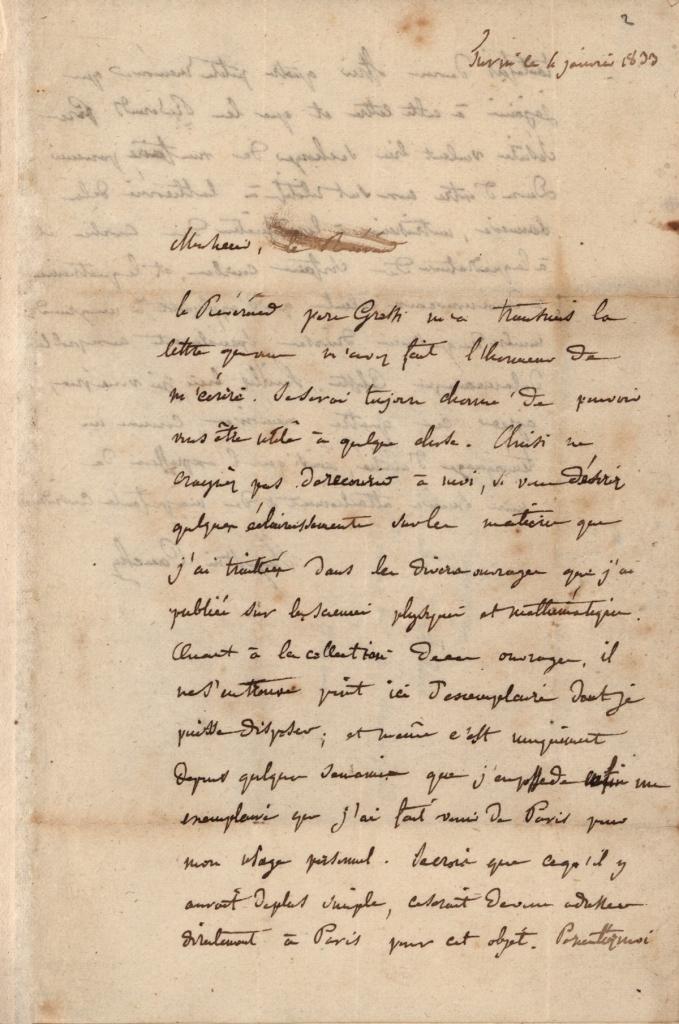 2
Turin le 6 janvier 1833
Monsieur, le
le Révérend pere Grassi m'a transmis la
lettre que vous m'avez fait l'honneur de
m'écrire. Je serai toujours charmé de pouvoir
vous être utile à quelque chose. Ainsi ne
craignez pas de recourir à moi, si vous désirez
quelques éclaircissements sur les matières que
j'ai traitées dans les divers ouvrages que j'ai
publiés sur les sciences physiques et mathématiques.
Quant à la collection de ces ouvrages, il
ne s'en trouve point ici d'exemplaire dont je
puisse disposer; et même c'est uniquement
depuis quelques semaines que j'en possède enfin un
exemplaire que j'ai fait venir de Paris pour
mon usage personnel. Je crois que ce qu'il y
aurait de plus simple, ce serait de vous adresser
directement à Paris pour cet objet. Permettez moi